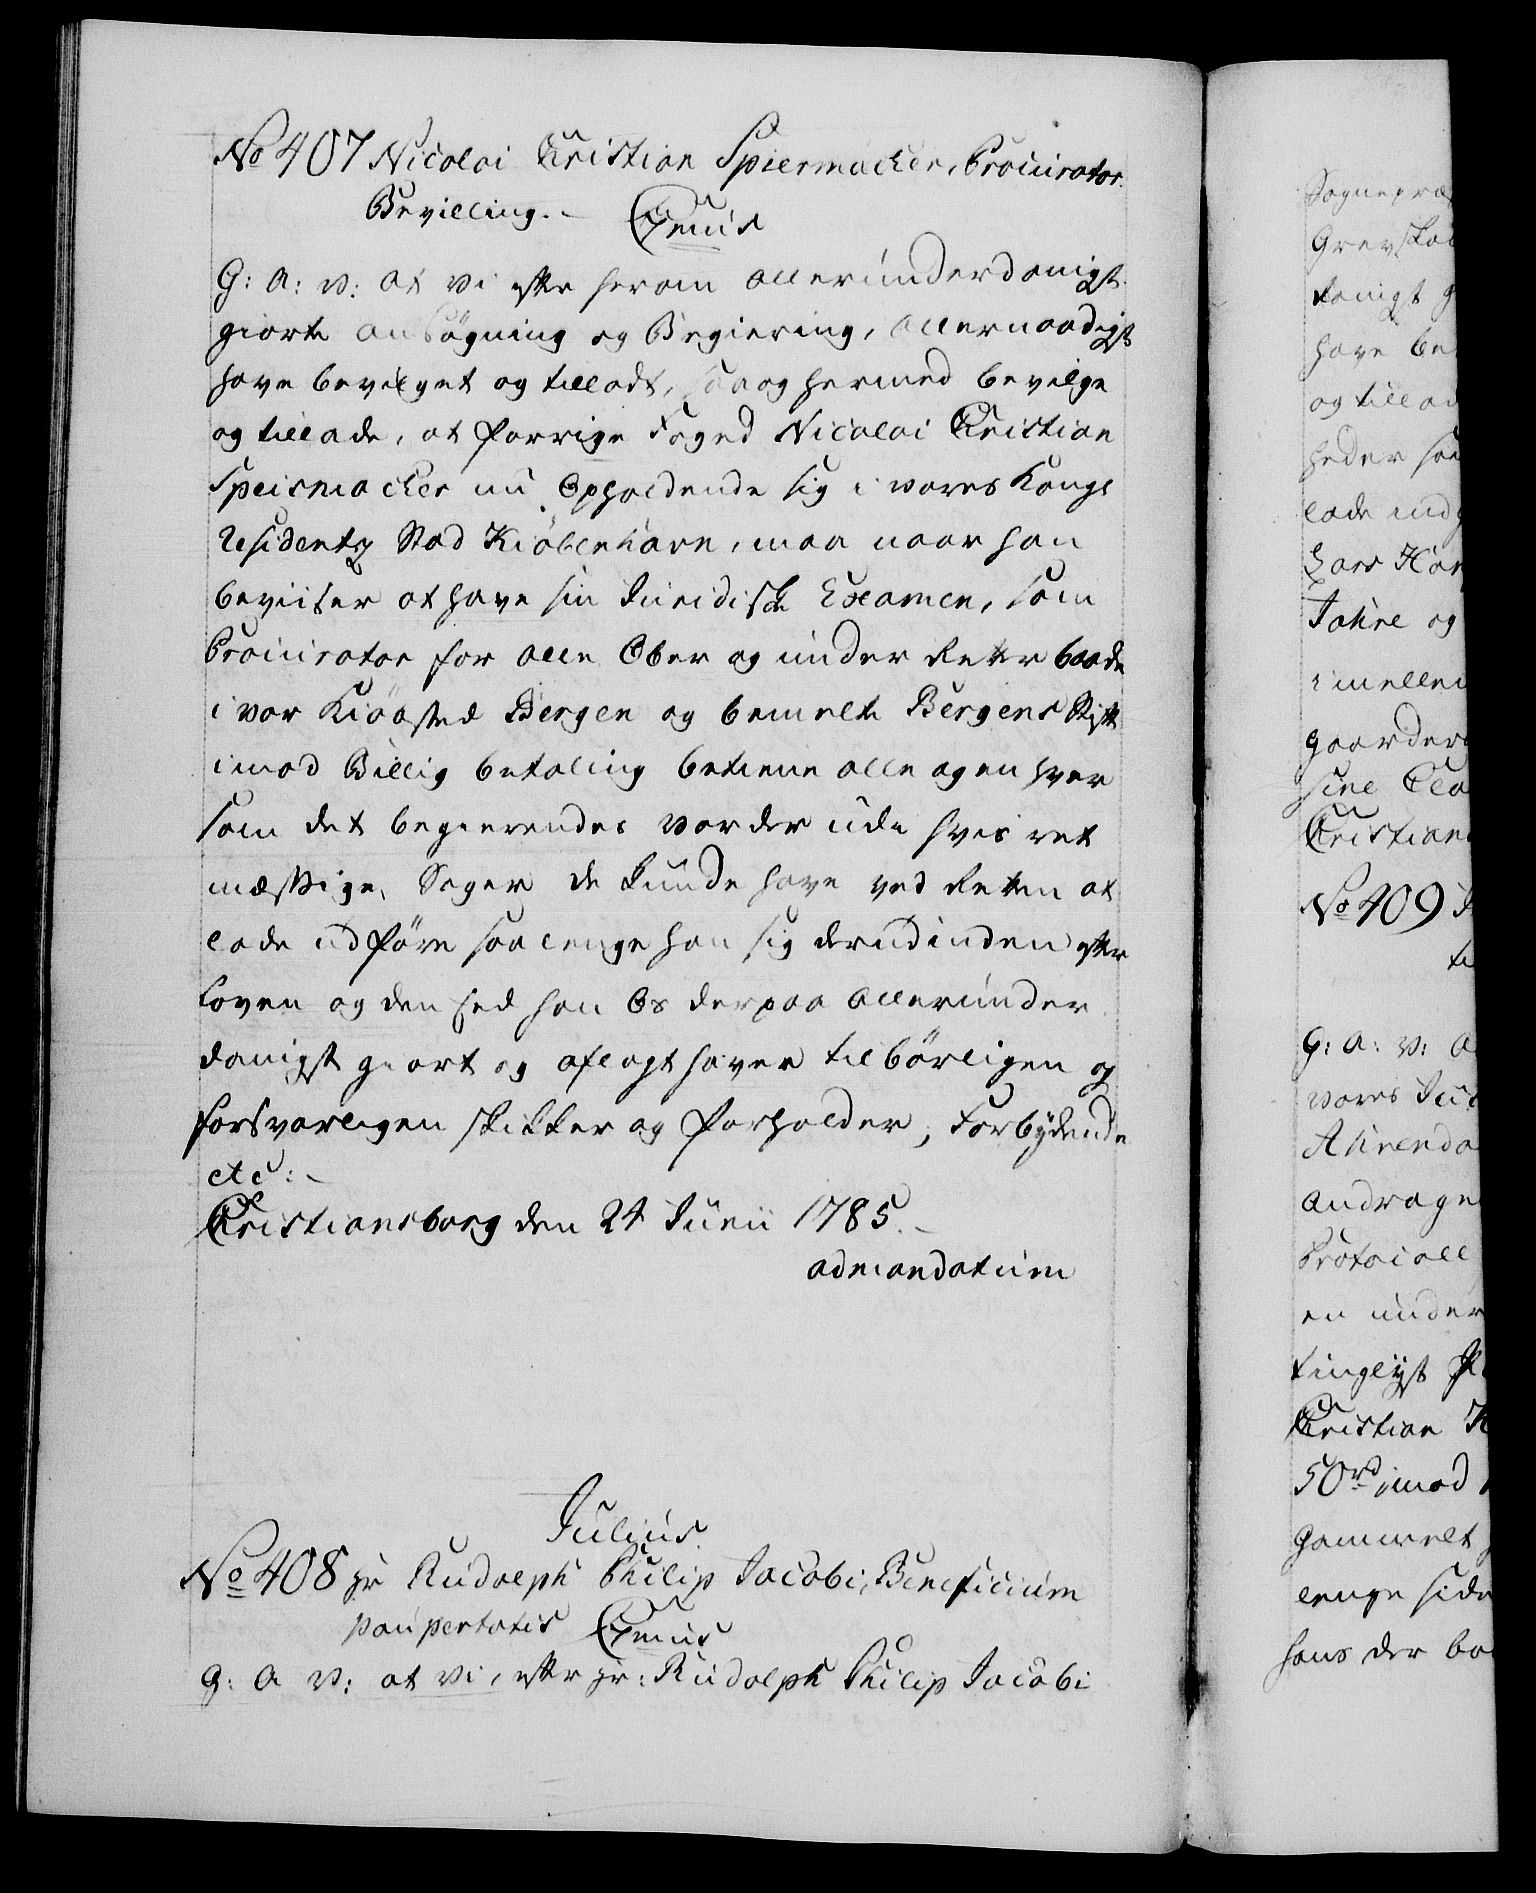 No 407 Nicolai Christian Spiermacher, Procurator
Bevilling. Genus
G: A: V: At Vi efter herom allerunderdanigst
giorte ansøgning og Begiering, allernaadigst
have bevilget og tilladt, saa og hermed bevilge
og tillade, at forrige Foged Nicolai Christian
Speismacher nu Opholdende sig i vores Kongl
Residentz Stad Kiöbenhavn, maa naar han
beviiser at have sin Juridisk Examen, som
Procurator for alle Ober og under Retter baade
i vor Kiöbsted Bergen og bemelte Bergens Stift
imod Billig betaling betiene alle og en hver
som det begierendes vorder udi hvis ret
mæssige Sager de kunde have ved Retten at
lade udføre saalenge han sig derudinden efter
loven og den Eed han Os derpaa allerunder
danigst giort og aflagt haver tilbörligen og
forsvarligen skikker og forholder, Forbydende
etc:
Christiansborg den 24 Junii 1785.
ad mandatum
Julius
No 408 Hr Rudolph Philip Jacobi, Beneficium
paupertatis Genus
G: A V: at vi, efter Hr: Rudolph Philip Jacobi
Sognepræ
Grevska
danigt g
have be
og tillad
heder
lade ind
Lars
Tahre og
imellem
gaarder
sine
Christian
No 409
G: A: V: A
vores Jus
Ahrenda
Andrage
Protocoll
en under
tinglyst
Christian
50 rd imod
gammelt
lenge side
hans der